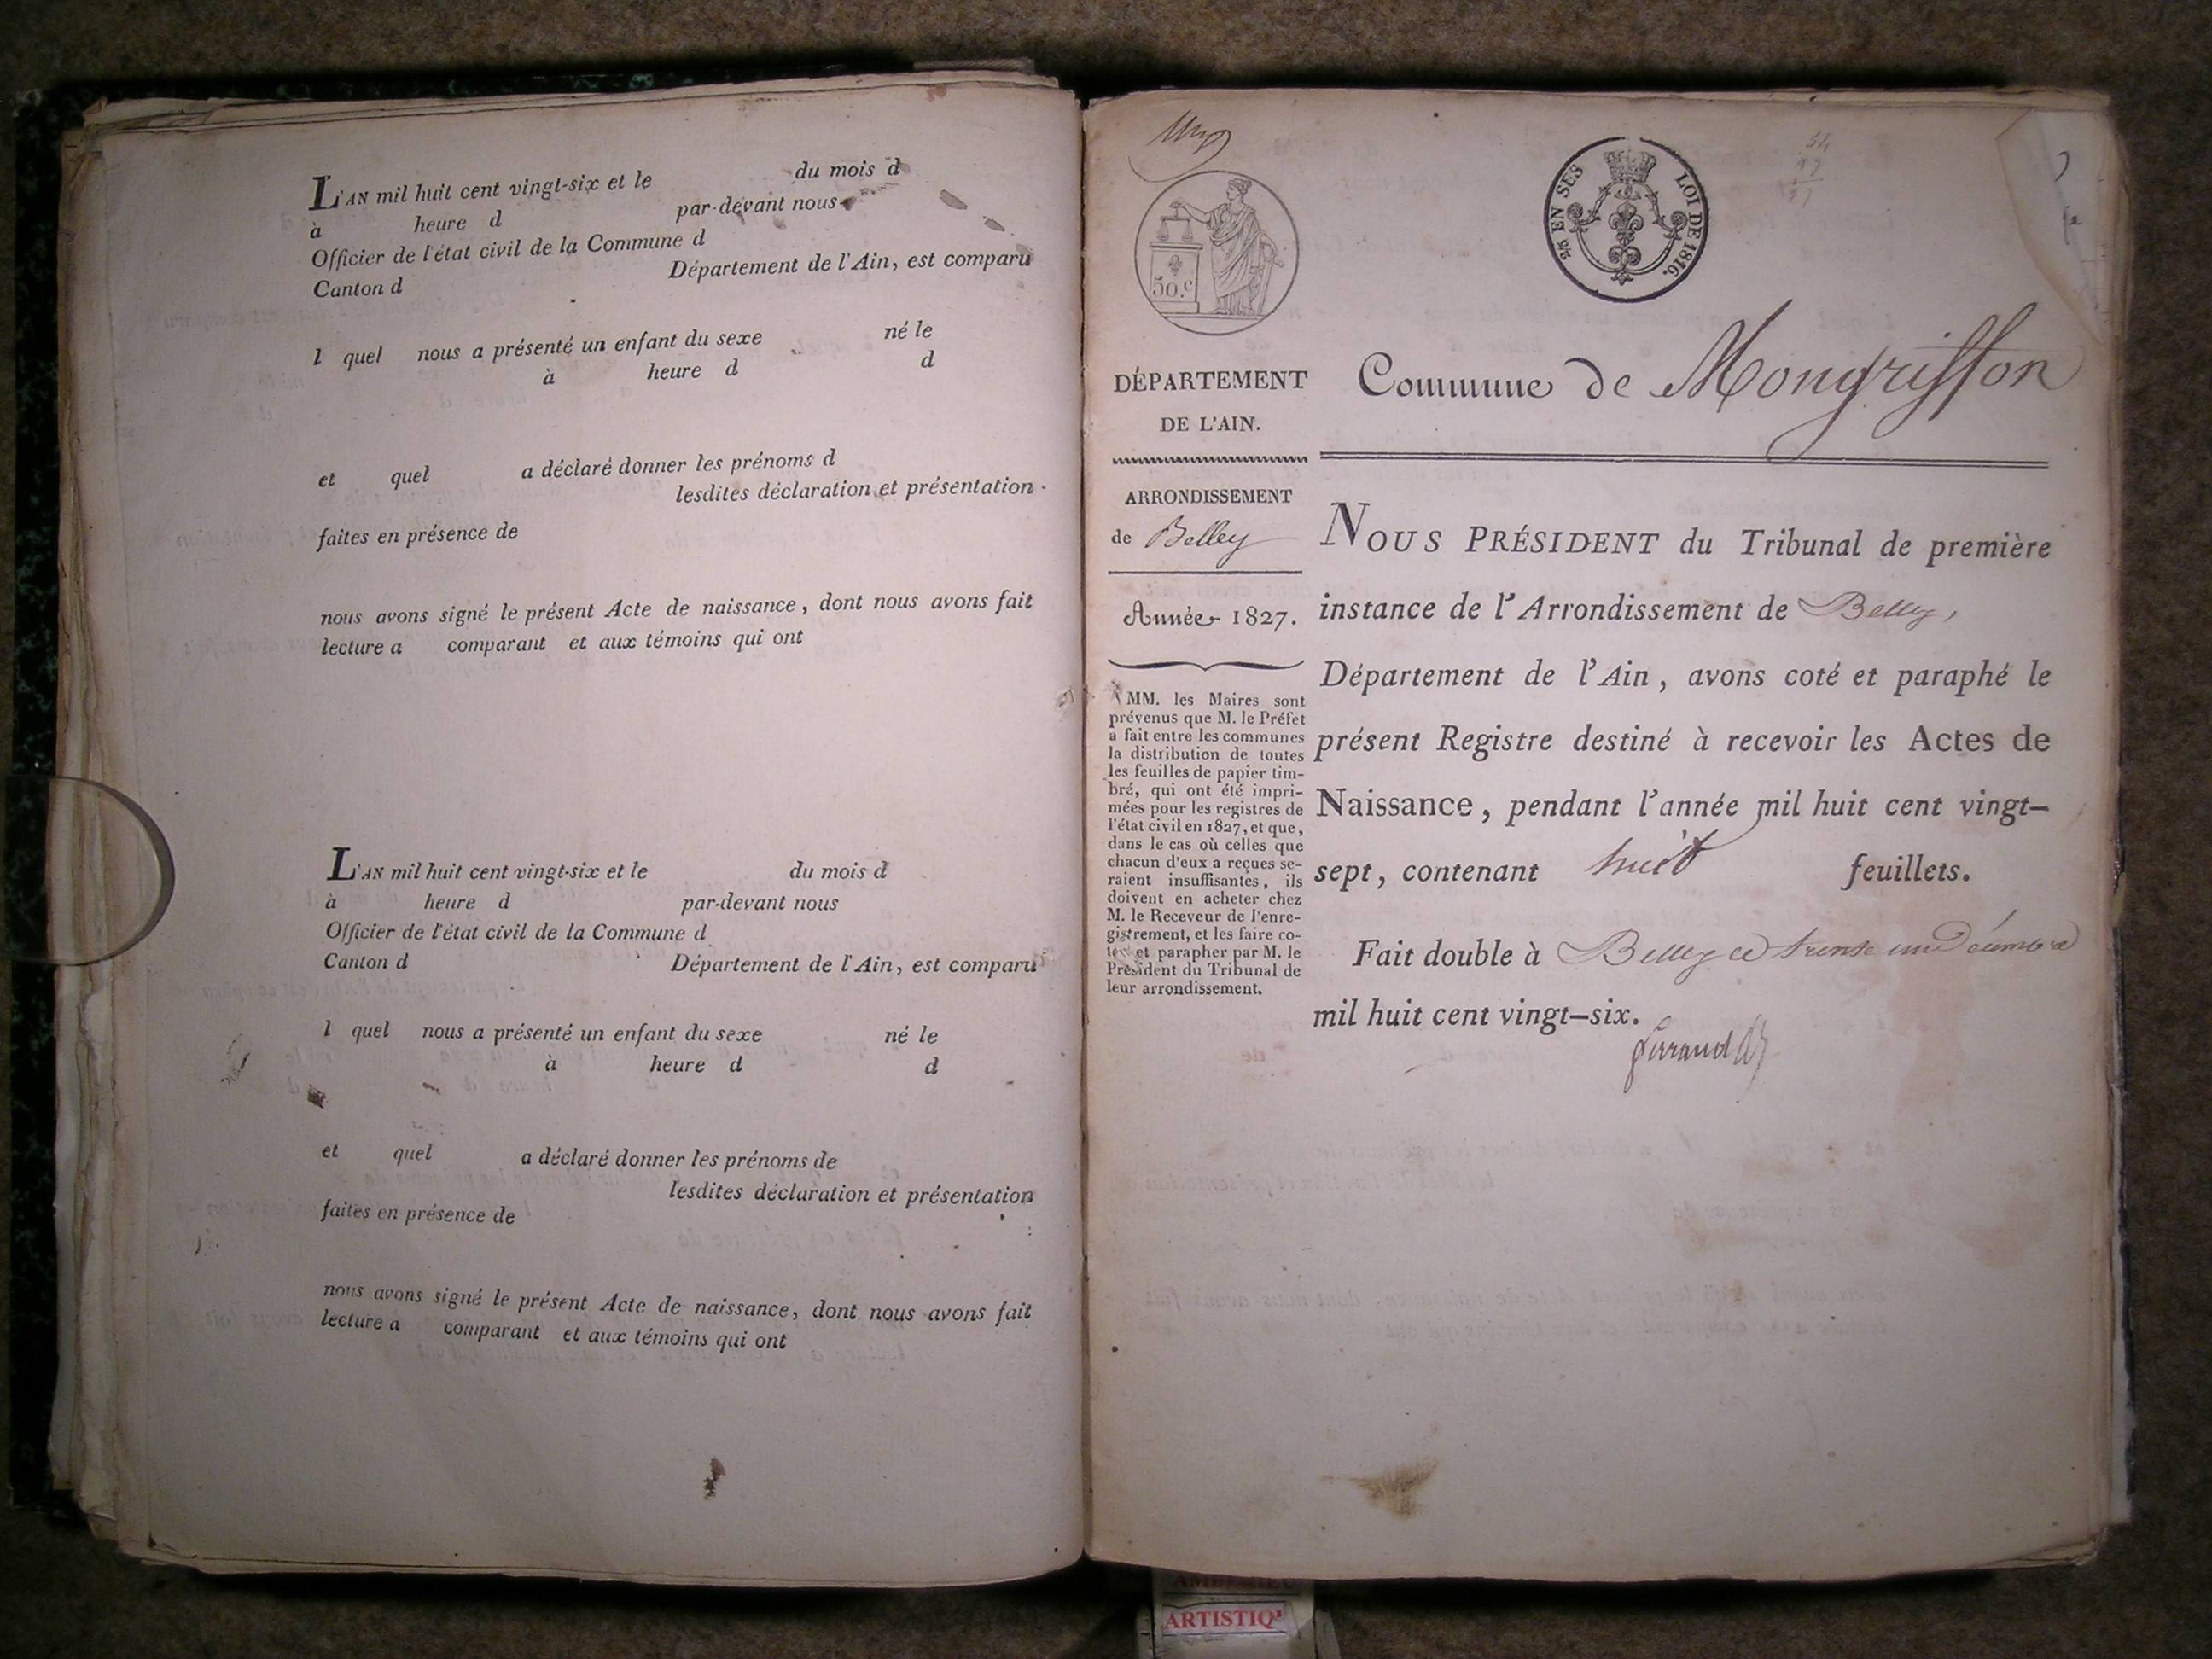 L'AN mil huit cent vingt-six et le du mois d
à heure d par-devant nous
Officier de l'état civil de la Commune d
Canton d Département de l'Ain, est comparu
l quel nous a présenté un enfant du sexe né le
à heure d d
et quel a déclaré donner les prénoms d
lesdites déclaration et présentation
faites en présence de
nous avons signé le présent Acte de naissance, dont nous avons fait
lecture a comparant et aux témoins qui ont
L'AN mil huit cent vingt-six et le du mois d
à heure d par-devant nous
Officier de l'état civil de la Commune d
Canton d Département de l'Ain, est comparu
l quel nous a présenté un enfant du sexe né le
à heure d d
et quel a déclaré donner les prénoms de
lesdites déclaration et présentation
faites en présence de
nous avons signé le présent Acte de naissance, dont nous avons fait
lecture a comparant et aux témoins qui ont
50.c
EN SES
LOI DE 1816.
DÉPARTEMENT
DE L'AIN.
ARRONDISSEMENT
de Belley
Année 1827.
MM. les Maires sont
prévenus que M. le Préfet
a fait entre les communes
la distribution de toutes
les feuilles de papier tim-
bré, qui ont été impri-
mées pour les registres de
l'état civil en 1827, et que,
dans le cas où celles que
chacun d'eux a reçues se-
raient insuffisantes, ils
doivent en acheter chez
M. le Receveur de l'enre-
gistrement, et les faire co-
ter et parapher par M. le
Président du Tribunal de
leur arrondissement.
Commune de Mongriffon
NOUS PRÉSIDENT du Tribunal de première
instance de l'Arrondissement de Belley,
Département de l'Ain, avons coté et paraphé le
présent Registre destiné à recevoir les Actes de
Naissance, pendant l'année mil huit cent vingt-
sept, contenant huit feuillets.
Fait double à Belley ce trente un Décembre
mil huit cent vingt-six.
ARTISTIQ